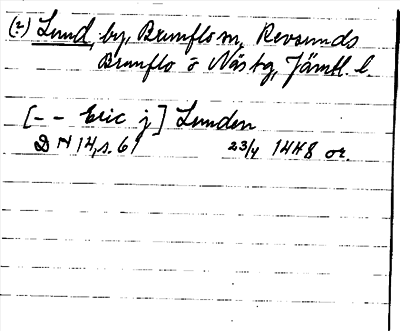 (2) Lund, by, Brunflo sn, Revsunds
Brunflo o Näs tg, Jämtl. l.
[- - Eric j] Lunden
DN 14, s. 61 23/4 1448 or.